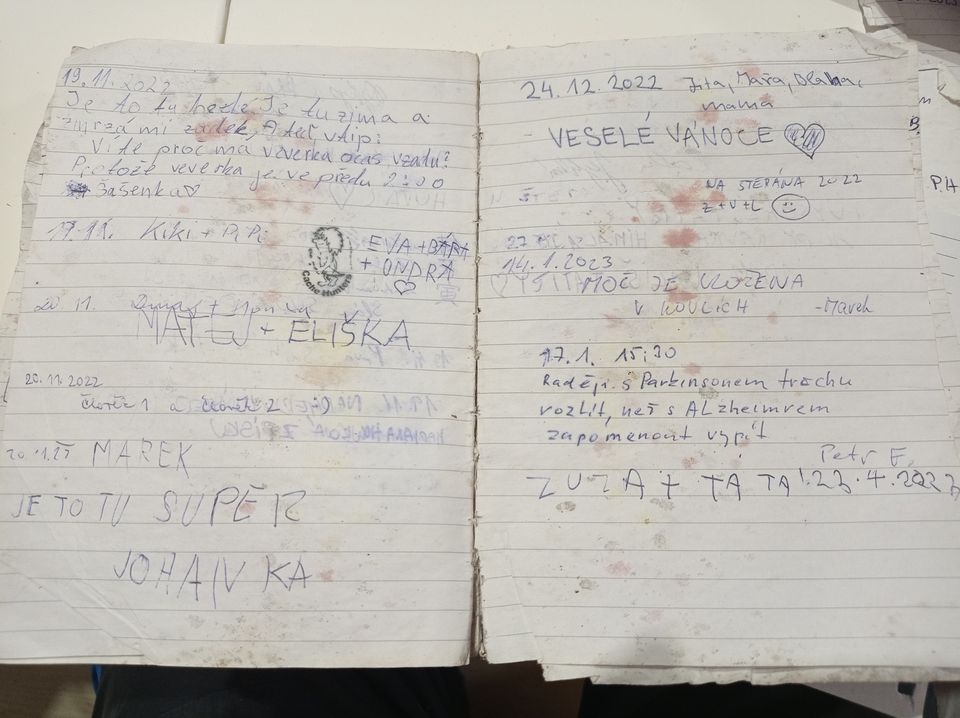 19.11.2022
Je to tu hezké. Je tu zima a
zmrzá mi zadek. A teď vtip:
Víte proč má veverka ocas vzadu?
Protože veverka je ve předu
Šašenka♡
17.11. Kiki + PiPi
EVA + BÁRA
+ ONDRA
♡
Cache Hunters
20.11.
MATEJ + ELIŠKA
20.11.2022
člověk 1 a člověk 2
MAREK
JE TO TU SUPER
JOHANKA
24.12.2022 Jita, Mařa,
mama
VESELÉ VÁNOCE ♡
NA ŠTĚPÁNA 2022
Z+V+L ☺
14.1.2023
MOČ JE ULOŽENA
V -Marek
17.1. 15:30
Raději s Parkinsonem trochu
rozlít, než s Alzheimrem
zapomenout vypít
Petr E.
ZUZA + TÁTA! 23.4.2023
B.
P.H